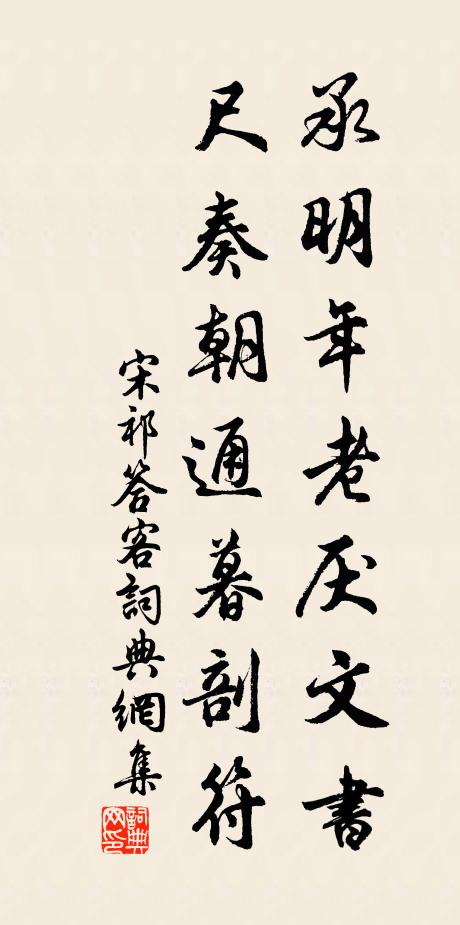 承明年老厌文書
尺奏朝通暮剖符
宋祁答客詞典網集
詞典網印